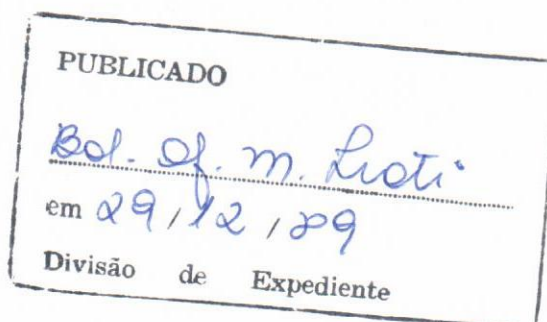 PUBLICADO
Bol. Of. M.
em 29/12/89
Divisão de Expediente